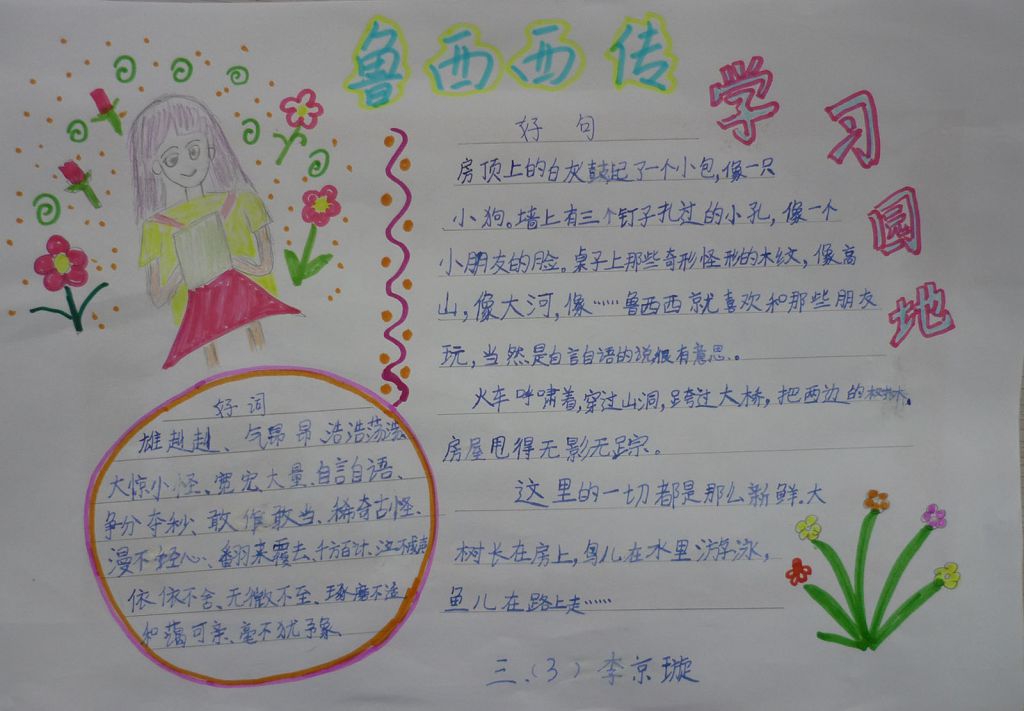 鲁西西传
学习园地
好句
房顶上的白灰鼓起了一个小包,像一只
小狗。墙上有三个钉子扎过的小孔,像一个
小朋友的脸。桌子上那些奇形怪形的木纹,像高
山,像大河,像……鲁西西就喜欢和那些朋友
玩,当然是自言自语的说很有意思。
火车呼啸着,穿过山洞,跨过大桥,把两边的树木。
房屋甩得无影无踪。
这里的一切都是那么新鲜.大
树长在房上,鸟儿在水里游泳,
鱼儿在路上走……
三.(3) 李京璇
好词
雄赳赳、气昂昂 浩浩荡荡
大惊小怪、宽宏大量、自言自语、
争分夺秒、敢作敢当、稀奇古怪、
漫不经心、翻来覆去、千方百计、泣不成声
依依不舍、无微不至、琢磨不透
和蔼可亲、毫不犹豫